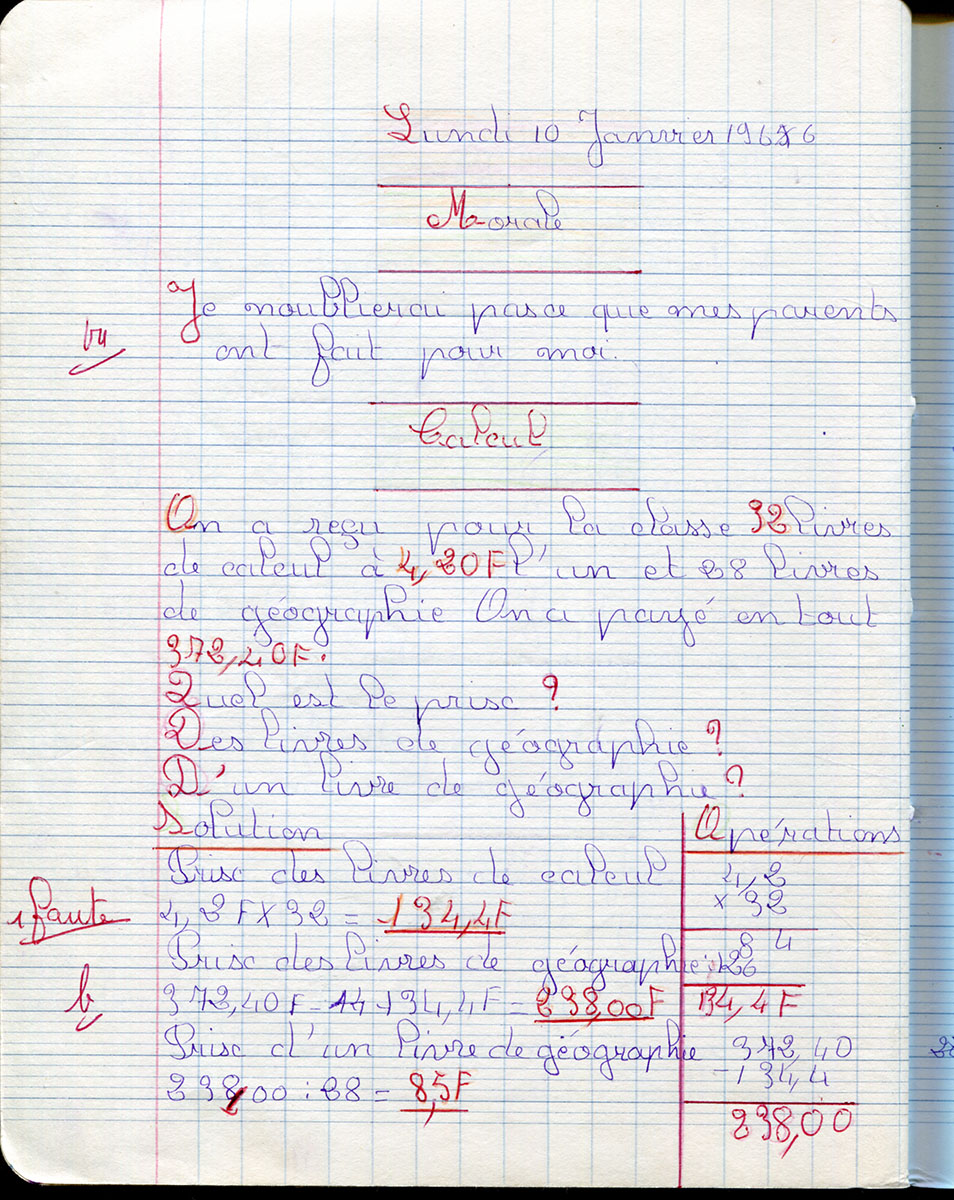 Lundi 10 Janvier 1966
Morale
Je noublierai pas ce que mes parents
vu
ont fait pour moi.
Calcul
On a reçu pour la classe 32 livres
de calcul à 4,20F l'un et 28 livres
de géographie On a payé en tout
372,40F.
Quel est le prix ?
Des livres de géographie ?
D'un livre de géographie ?
Solution
Prix des livres de calcul
1 faute
4,2F × 32 = 134,4F
Prix des livres de géographie :
b
372,40F - 134,4F = 238,00F
Prix d'un livre de géographie
238,00 : 28 = 8,5F
Opérations
4,2
× 32
8 4
126
134,4F
372,40
- 134,4
238,00